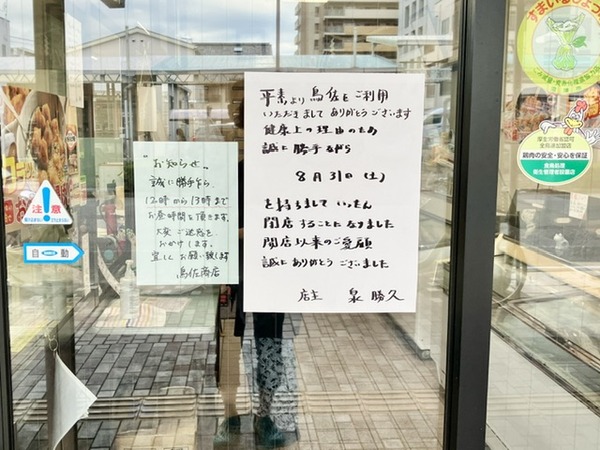 平素より 鳥佐をご利用
いただきまして ありがとうございます
健康上の理由のため
誠に勝手ながら
8月31日(土)
を持ちまして いったん
閉店することになりました
開店以来のご愛顧
誠に ありがとうございました
店主 泉 勝久
"お知らせ"
誠に勝手ながら、
12時から13時まで
お昼時間を頂きます。
大変ご迷惑を
おかけします。
宜しくお願い致します
鳥佐商店
注意
自動
鶏肉の安全・安心を保証